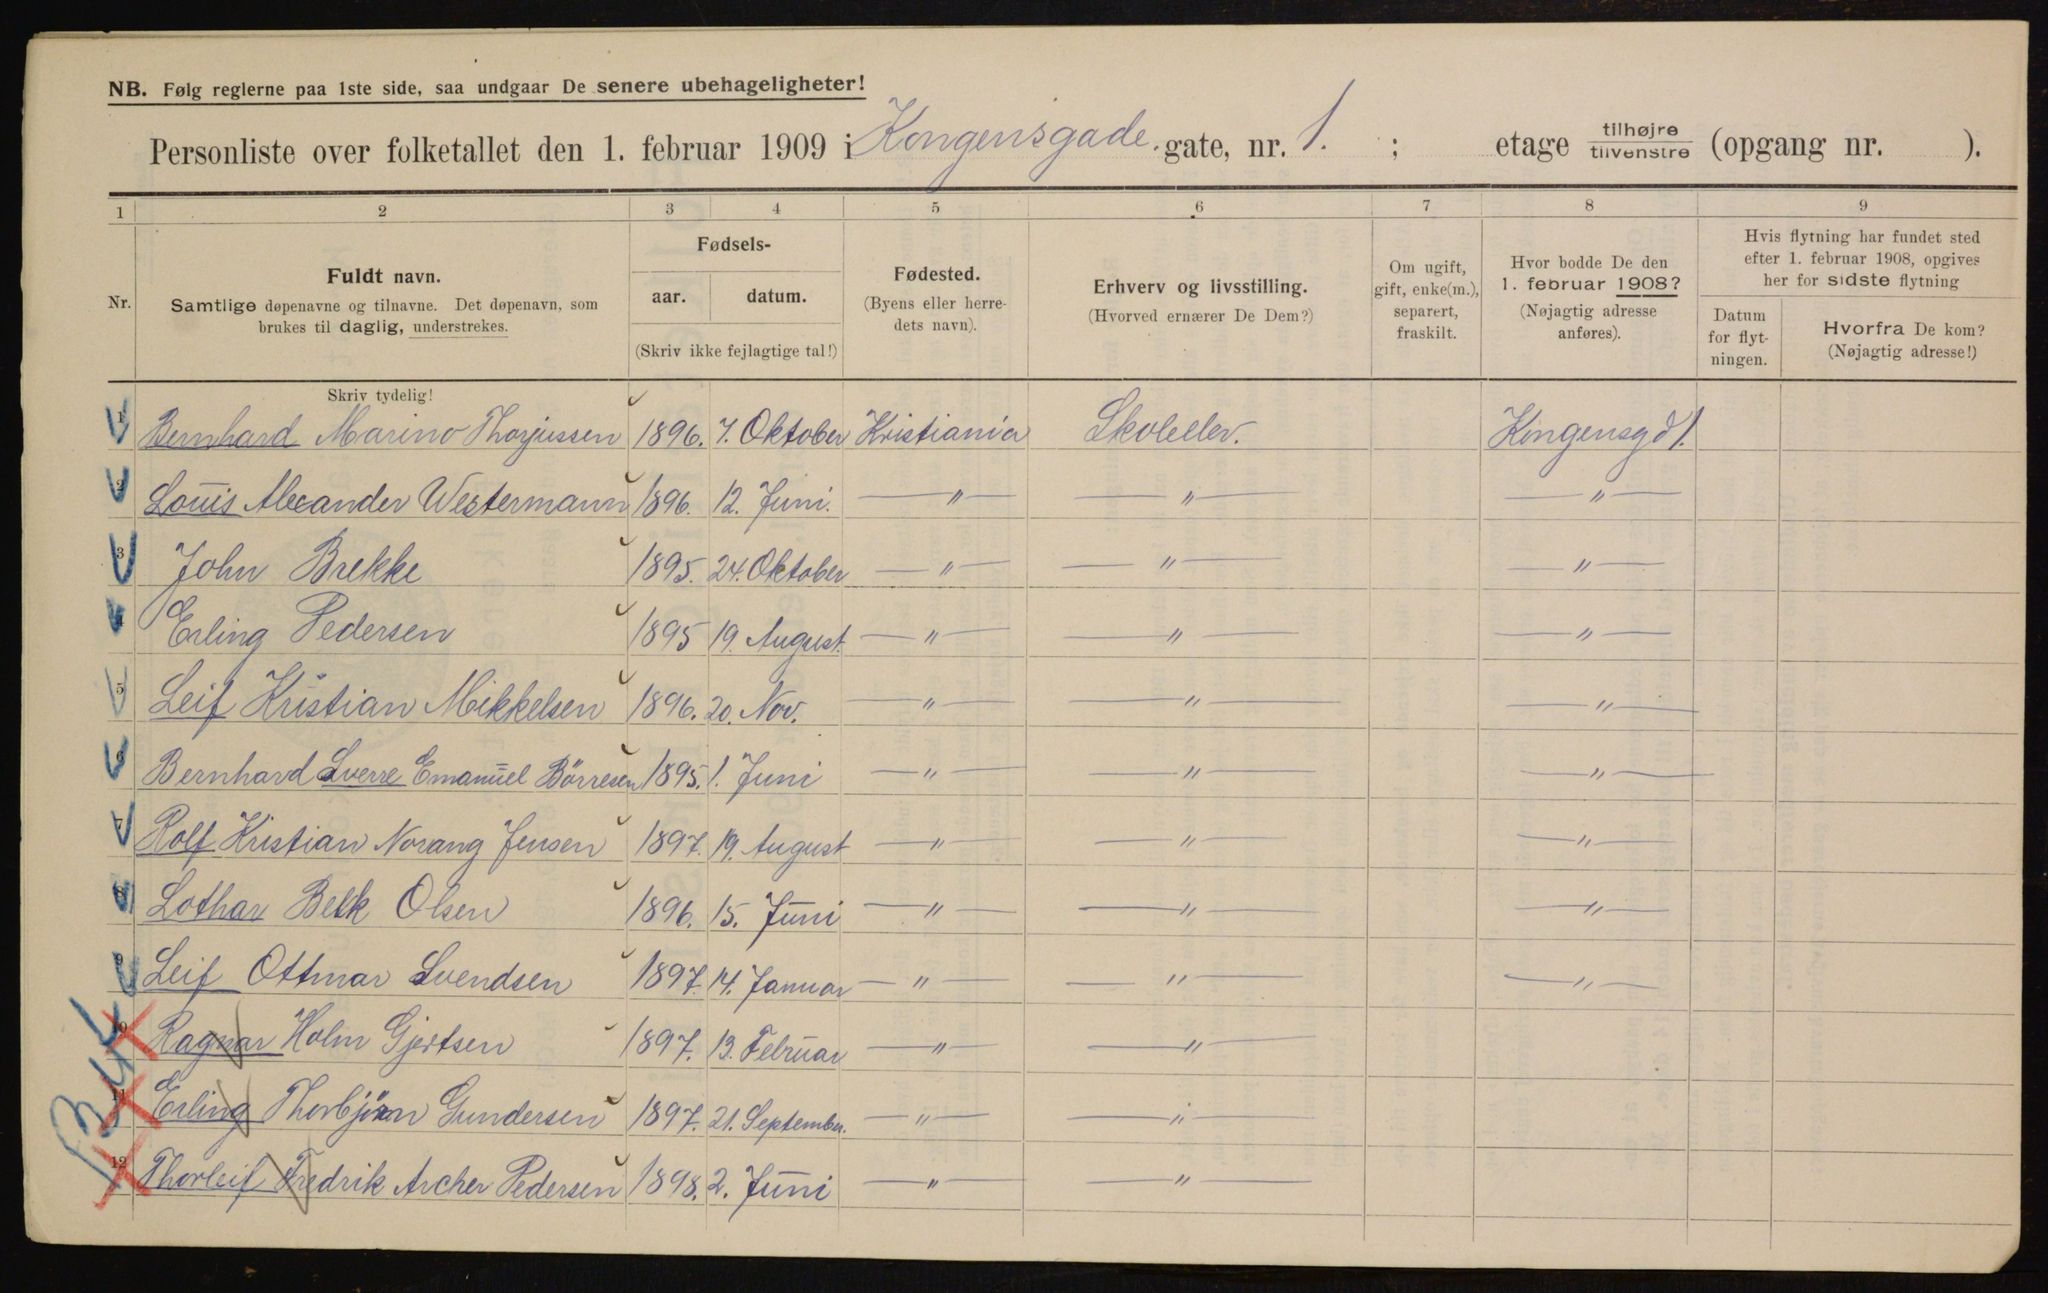 NB. Følg reglerne paa 1ste side, saa undgaar De senere ubehageligheter!
Personliste over folketallet den 1. februar 1909 i Kongensgade. gate, nr. 1. ; etage tilhøjre tilvenstre (opgang nr. ).
1 2 3 4 5 6 7 8 9
Nr.
Fuldt navn.
Samtlige døpenavne og tilnavne. Det døpenavn, som
brukes til daglig, understrekes.
Skriv tydelig!
Fødsels-
aar. datum.
(Skriv ikke fejlagtige tal!)
Fødested.
(Byens eller herre-
dets navn).
Erhverv og livsstilling.
(Hvorved ernærer De Dem?)
Om ugift,
gift, enke(m.),
separert,
fraskilt.
Hvor bodde De den
1. februar 1908?
(Nøjagtig adresse
anføres).
Hvis flytning har fundet sted
efter 1. februar 1908, opgives
her for sidste flytning
Datum
for flyt-
ningen.
Hvorfra De kom?
(Nøjagtig adresse!)
1 Bernhard Marino Thorjussen 1896. 7. Oktober Kristiania Skoleelev. Kongensgd 1.
2 Louis Alexander Westermann 1896. 12. Juni. — " — — " — — " —
3 John Brekke 1895. 24. Oktober — " — — " — — " —
4 Erling Pedersen 1895 19. August. — " — — " — — " —
5 Leif Kristian Mikkelsen 1896. 20. Nov. — " — — " — — " —
6 Bernhard Sverre Emanuel Börresen 1895. 1. Juni — " — — " — — " —
7 Rolf Kristian Norang Jensen 1897. 19. August — " — — " — — " —
8 Lothar Belk Olsen 1896. 15. Juni — " — — " — — " —
9 Leif Ottmar Svendsen 1897. 14. Januar — " — — " — — " —
10 Ragnar Holm Gjertsen 1897. 13. Februar — " — — " —
11 Erling Thorbjörn Gundersen 1897. 21. September. — " — — " —
12 Thorleif Fredrik Archer Pedersen 1898. 2. Juni — " — — " —